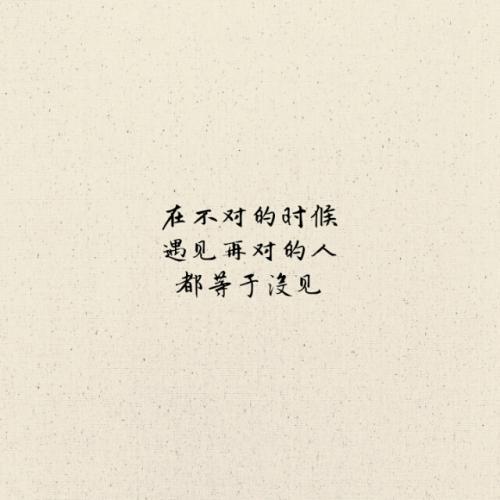 在不对的时候
遇见再对的人
都等于没见